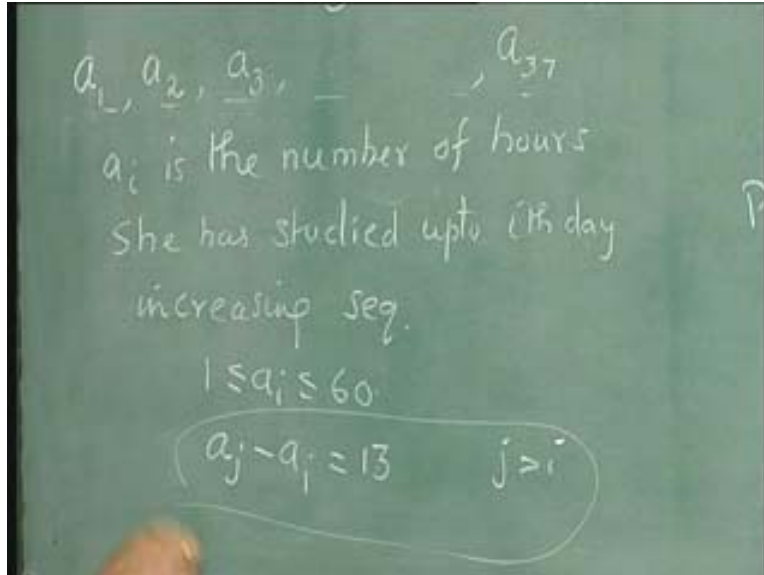 a₁, a₂, a₃, _ _, a₃₇
aᵢ is the number of hours
She has studied upto ith day
increasing seq.
1 ≤ aᵢ ≤ 60.
aⱼ - aᵢ = 13 j > i
P